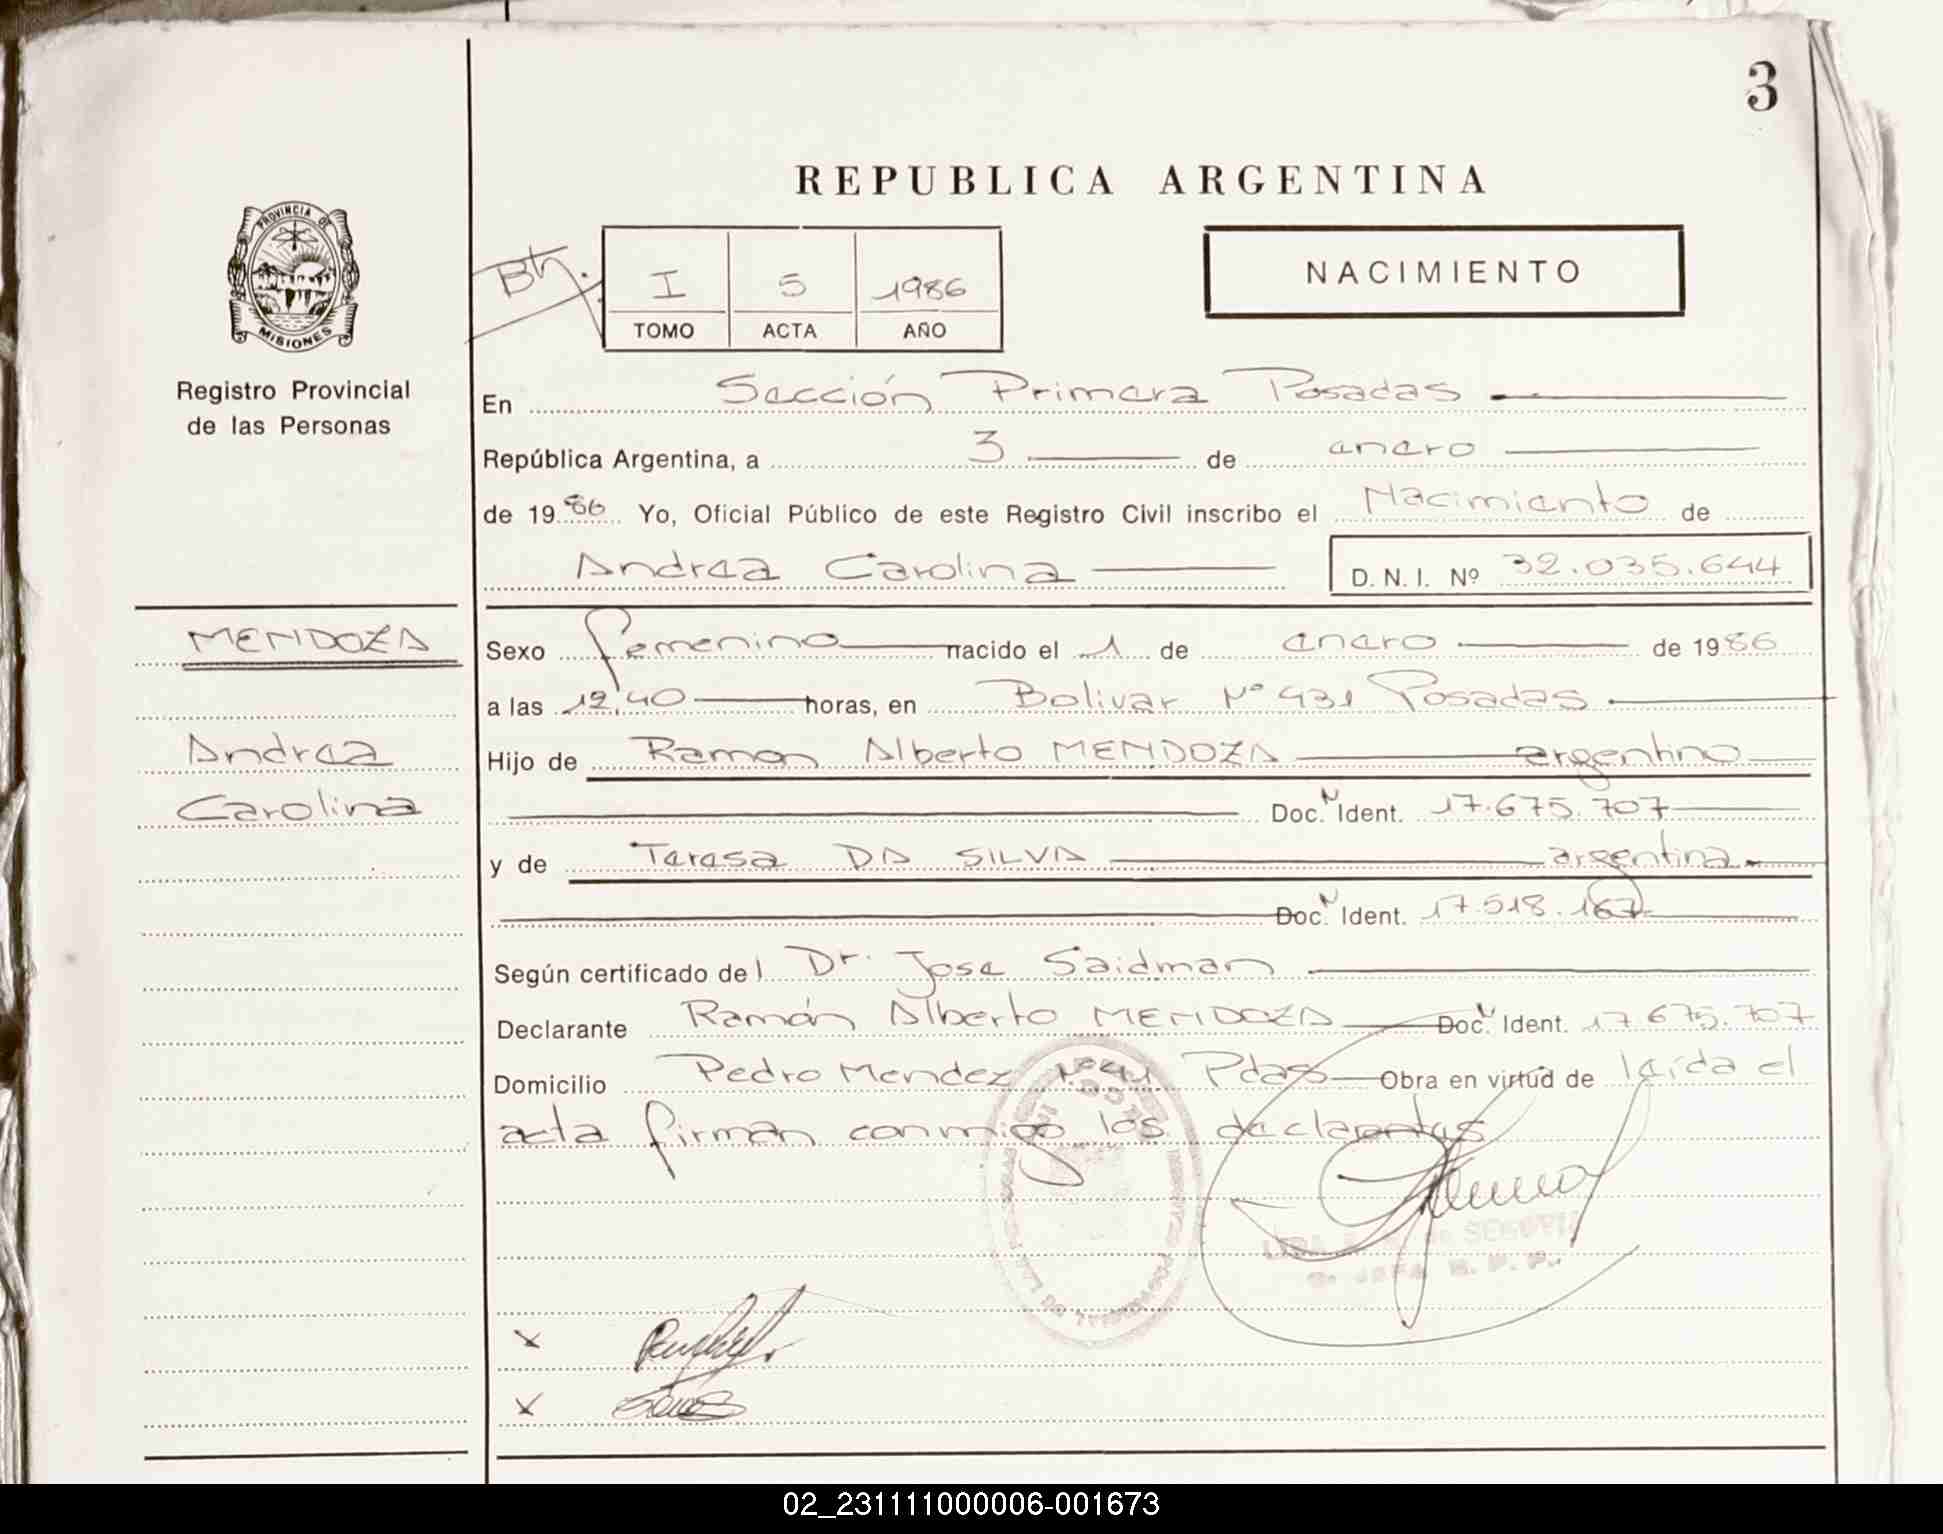 3
REPUBLICA ARGENTINA
PROVINCIA DE
MISIONES
Registro Provincial
de las Personas
I 5 1986
TOMO ACTA AÑO
NACIMIENTO
En Sección Primera Posadas
República Argentina, a 3 de enero
de 1986 Yo, Oficial Público de este Registro Civil inscribo el Nacimiento de
Andrea Carolina D. N. I. Nº 32.035.644
MENDOZA
Andrea
Carolina
Sexo femenino nacido el 1 de enero de 1986
a las 12,40 horas, en Bolivar Nº 431 Posadas
Hijo de Ramon Alberto MENDOZA argentino
Doc. N Ident. 17.675.707
y de Teresa DA SILVA argentina
Doc. N Ident. 17.518.167
Según certificado del Dr. Jose Saidman
Declarante Ramón Alberto MENDOZA Doc. N Ident. 17.675.707
Domicilio Pedro Mendez Nº 41 Pdas Obra en virtud de leída el
acta firman conmigo los declarantes
02_231111000006-001673